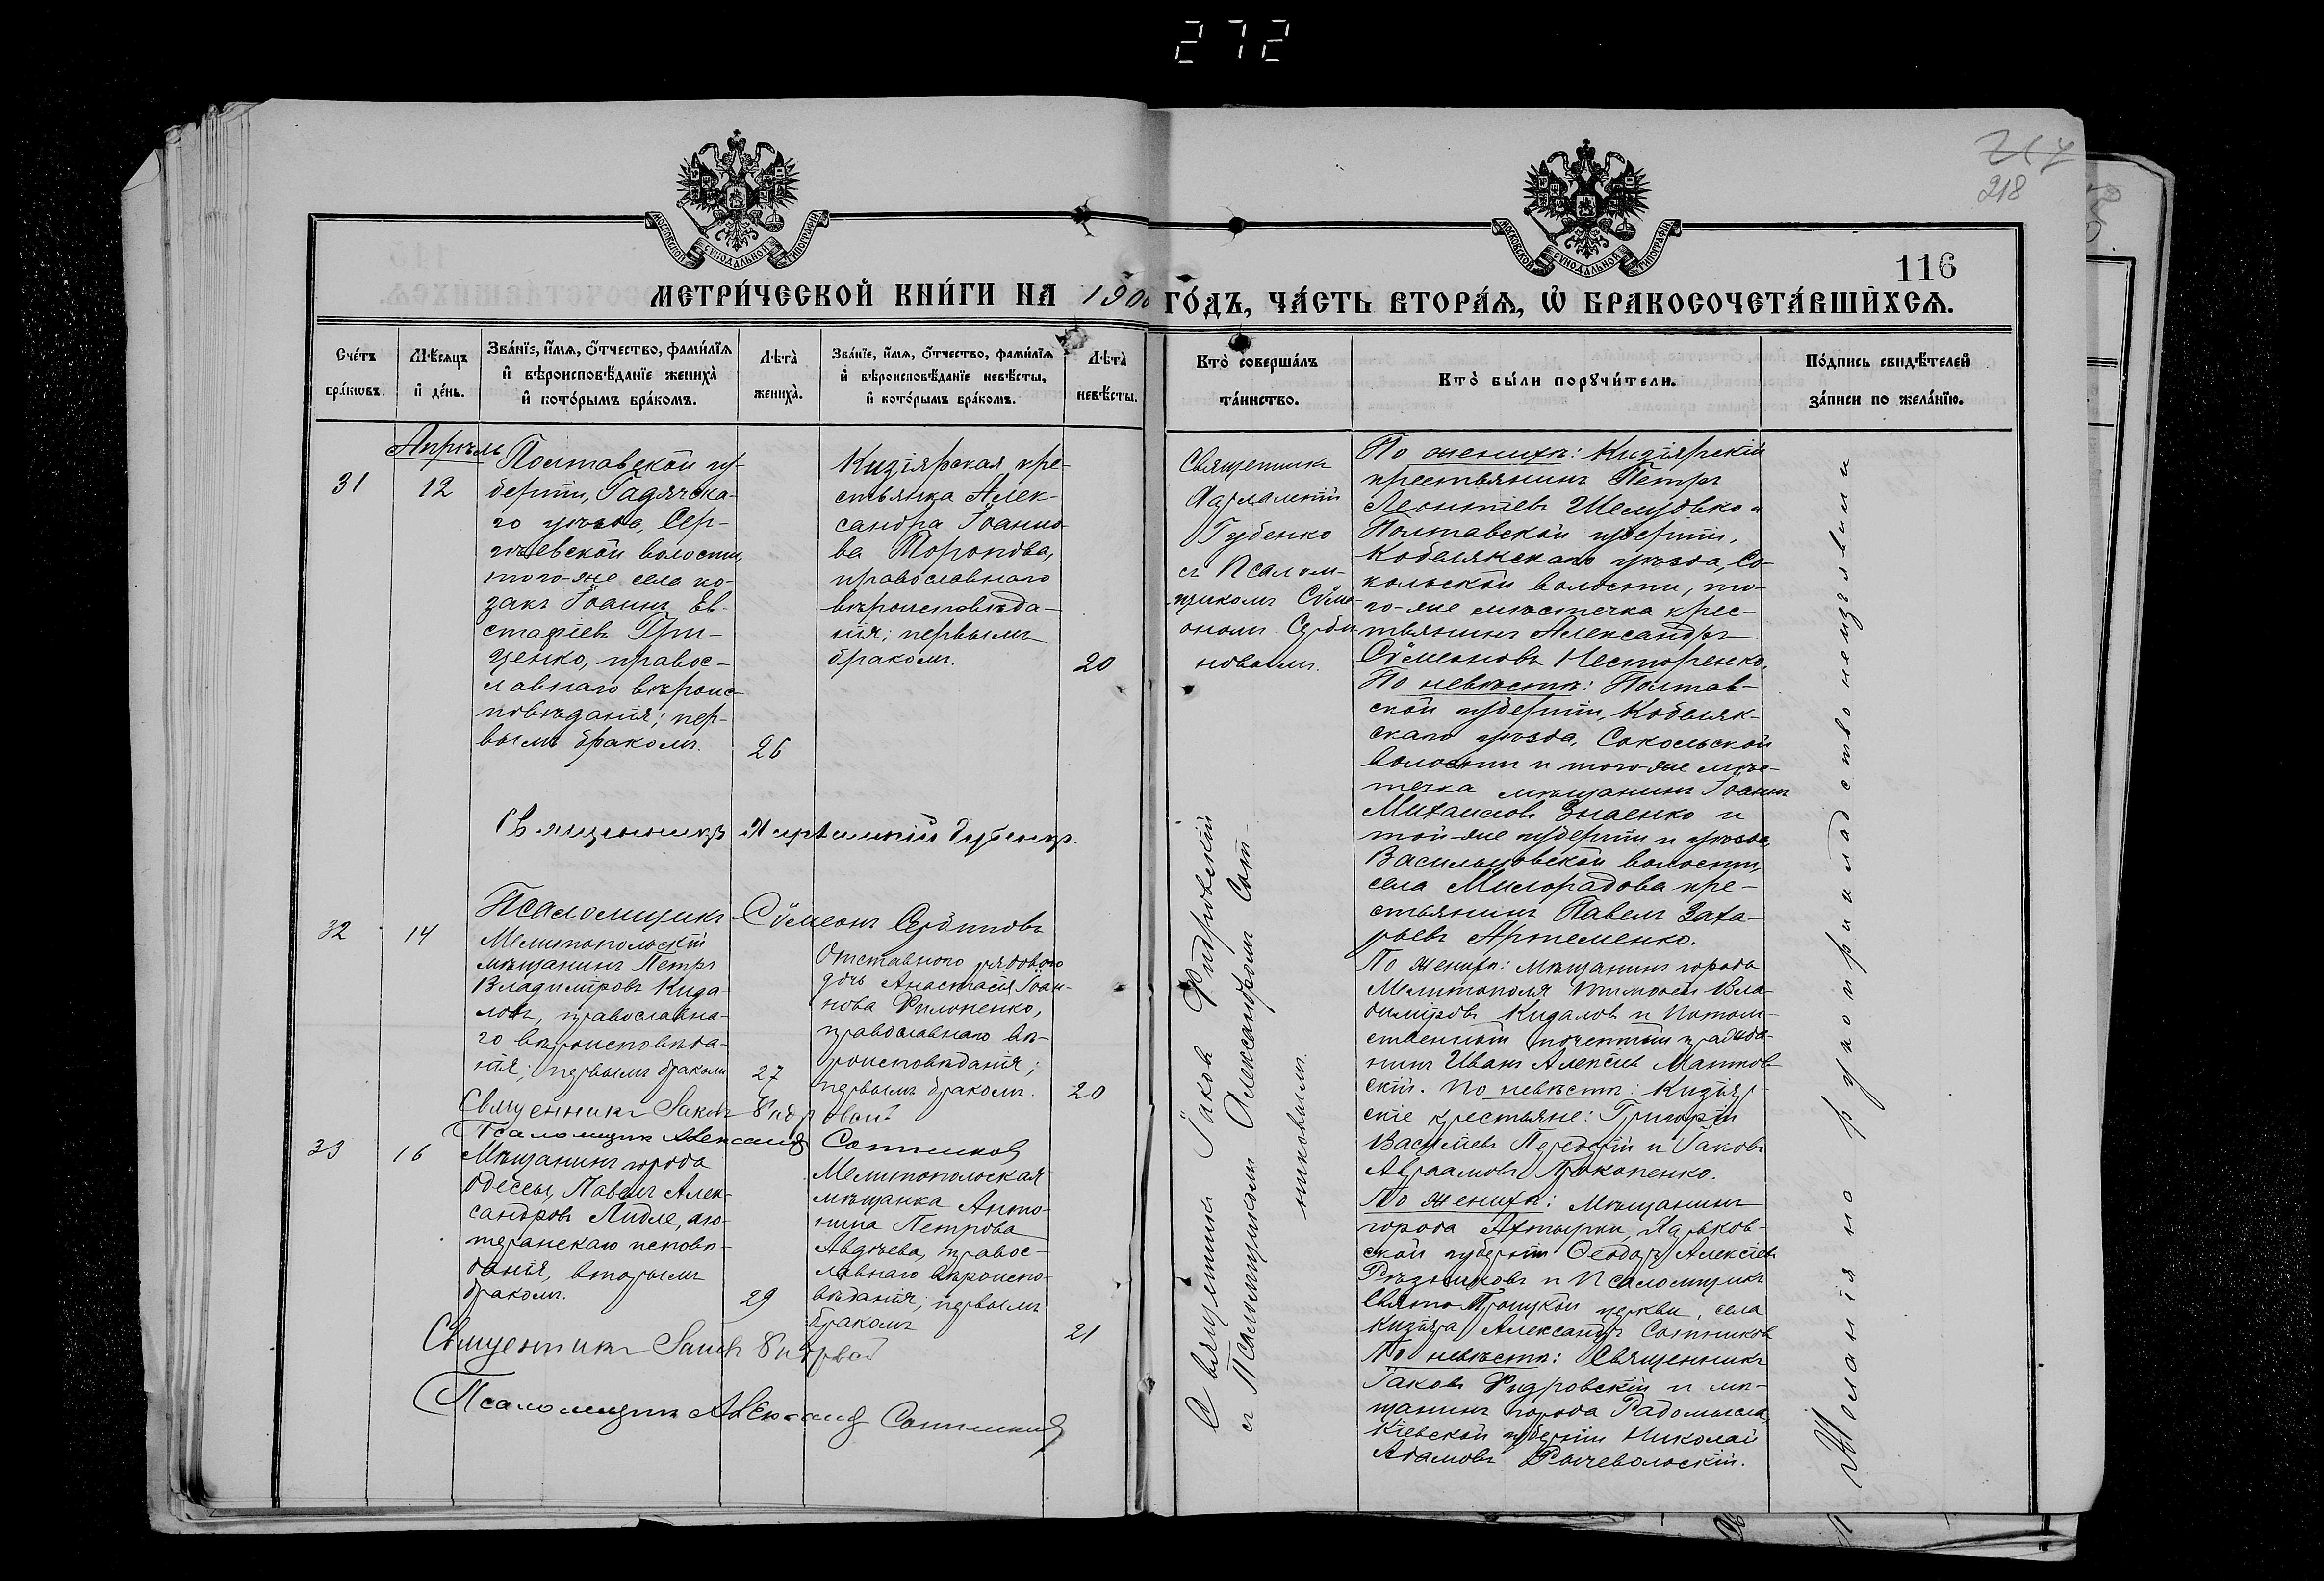 272
217
218
116
МОСКОВСКОЙ СѴНОДАЛЬНОЙ ТИПОГРАФІИ
МОСКОВСКОЙ СѴНОДАЛЬНОЙ ТИПОГРАФІИ
МЕТРИ́ЧЕСКОЙ КНИ́ГИ НА 1900 ГО́ДЪ, ЧА́СТЬ ВТОРА́Ѧ, Ѡ҆ БРАКОСОЧЕТА́ВШИХСѦ.
Сче́тъ бра́кѡвъ.
Мѣ́сѧцъ и҆ де́нь.
Зва́нїе, и҆́мѧ, ѻ҆́тчество, фами́лїѧ
и҆ вѣроисповѣ́данїе жениха̀
и҆ кото́рымъ бра́комъ.
Лѣта̀ жениха̀.
Зва́нїе, и҆́мѧ, ѻ҆́тчество, фами́лїѧ
и҆ вѣроисповѣ́данїе невѣ́сты,
и҆ кото́рымъ бра́комъ.
Лѣта̀ невѣ́сты.
Кто̀ соверша́лъ
та́инство.
Кто̀ бы́ли порꙋчи́тели.
По́дпись свидѣ́телей
за́писи по жела́нїю.
Апрѣль
31
12
Полтавской гу-
берніи, Гадячска-
го уѣзда, Сер-
гѣевской волости,
того-же села ко-
закъ Іоаннъ Ев-
стафіевъ Гри-
ценко, правос-
лавнаго вѣроис-
повѣданія; пер-
вымъ бракомъ.
26
Кизіярская кре-
стьянка Алек-
сандра Іоанно-
ва Торопова,
православнаго
вѣроисповѣда-
нія; первымъ
бракомъ.
20
Священникъ
Харлампій
Губенко
съ Псалом-
щикомъ Сѵме-
ономъ
новымъ.
По женихѣ: Кизіярскій
крестьянинъ Петръ
Леонтіевъ Шелудько и
Полтавской губерніи,
Кобелякскаго уѣзда, Со-
кольской волости, то-
го-же мѣстечка крес-
тьянинъ Александръ
Сѵмеоновъ Нестеренко.
По невѣстѣ: Полтав-
ской губерніи, Кобеляк-
скаго уѣзда, Сокольской
волости и того-же мѣс-
течка мѣщанинъ Іоаннъ
Михаиловъ Знаенко и
той-же губерніи и уѣзда,
Васильцовской волости,
села Милорадова кре-
стьянинъ Павелъ Заха-
рьевъ Артеменко.
Священникъ Харлампій Губенко.
Псаломщикъ Сѵмеонъ
32
14
Мелитопольскій
мѣщанинъ Петръ
Владиміровъ Кида-
ловъ, православна-
го вѣроисповѣда-
нія; первымъ бракомъ
27
Отставного рядового
дочь Анастасія Іоан-
нова Филоненко,
православнаго вѣ-
роисповѣданія;
первымъ бракомъ.
20
По женихѣ: мѣщанинъ города
Мелитополя Тимофей Вла-
диміровъ Кидаловъ и Потом-
ственный почетный гражда-
нинъ Иванъ Алексѣевъ
скій. По невѣстѣ: Кизіяр-
скіе крестьяне: Григорій
Василіевъ и Іаковъ
Авраамовъ Прокопенко.
Священникъ Іаковъ Фидровскій
Псаломщикъ Александръ Сотниковъ
33
16
Мѣщанинъ города
Одессы, Павелъ Алек-
сандровъ Лидле, лю-
теранскаго исповѣ-
данія, вторымъ
бракомъ.
29
Мелитопольская
мѣщанка Анто-
нина Петрова
Авдѣева, правос-
лавнаго вѣроиспо-
вѣданія; первымъ
бракомъ
21
По женихѣ: Мѣщанинъ
города Ахтырки, Харьков-
ской губерніи Ѳеодоръ Алексіевъ
Рѣзниковъ и Псаломщикъ
Свято-Троицкой церкви, села
Кизіяра Александръ Сотниковъ
По невѣстѣ: Священникъ
Іаковъ Фидровскій и мѣ-
щанинъ города Радомысла,
Кіевской губерніи Николай
Адамовъ
Священникъ Іаковъ Фидровскій
Псаломщикъ Александръ Сотниковъ
Священникъ Іаковъ Фидровскій
съ Псаломщикомъ Александромъ Сот-
никовымъ.
Желанія на рукоприкладство не изъявили